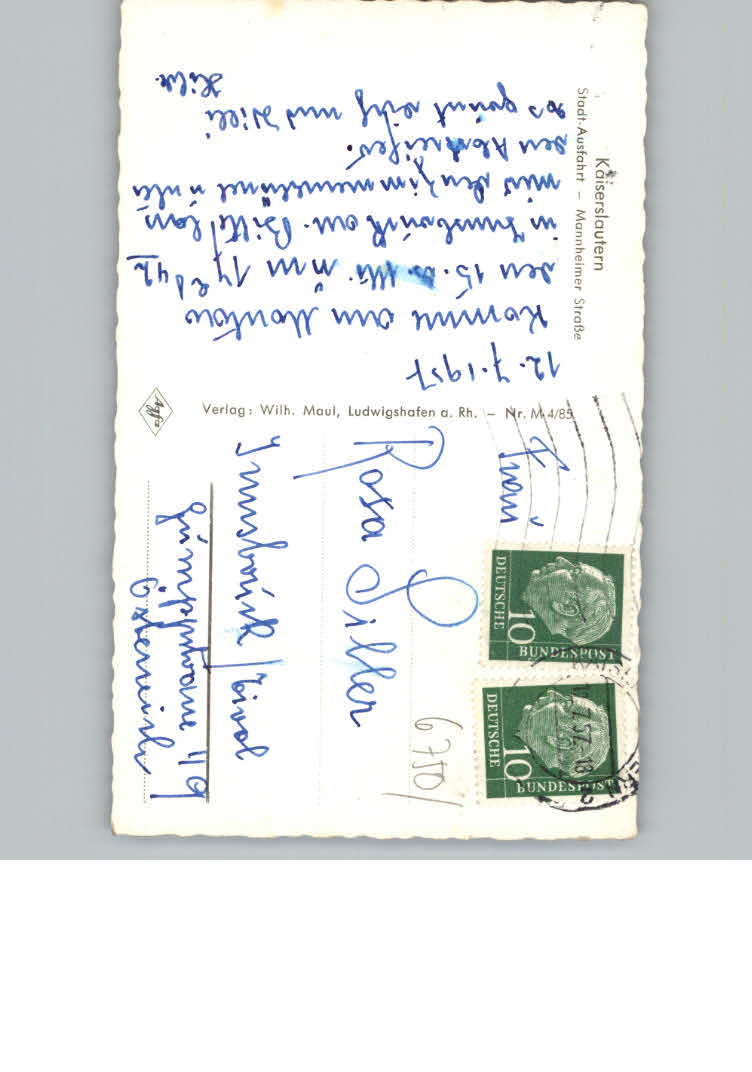 Kaiserslautern
Stadt-Ausfahrt – Mannheimer Straße
12.7.1957
Komme am Montag
den 15. ds. Mt. um 14 Uhr 42
in Innsbruck an. Bitte
mir den Zimmer
den
Es grüßt dich und Willi
Hilde.
Verlag: Wilh. Maul, Ludwigshafen a. Rh. – Nr. M 4/85
Agfa
Frau
Rosa Siller
Innsbruck / Tirol
Gumppstrasse
Österreich
6750/
DEUTSCHE
BUNDESPOST
10
DEUTSCHE
BUNDESPOST
10
7.57-18